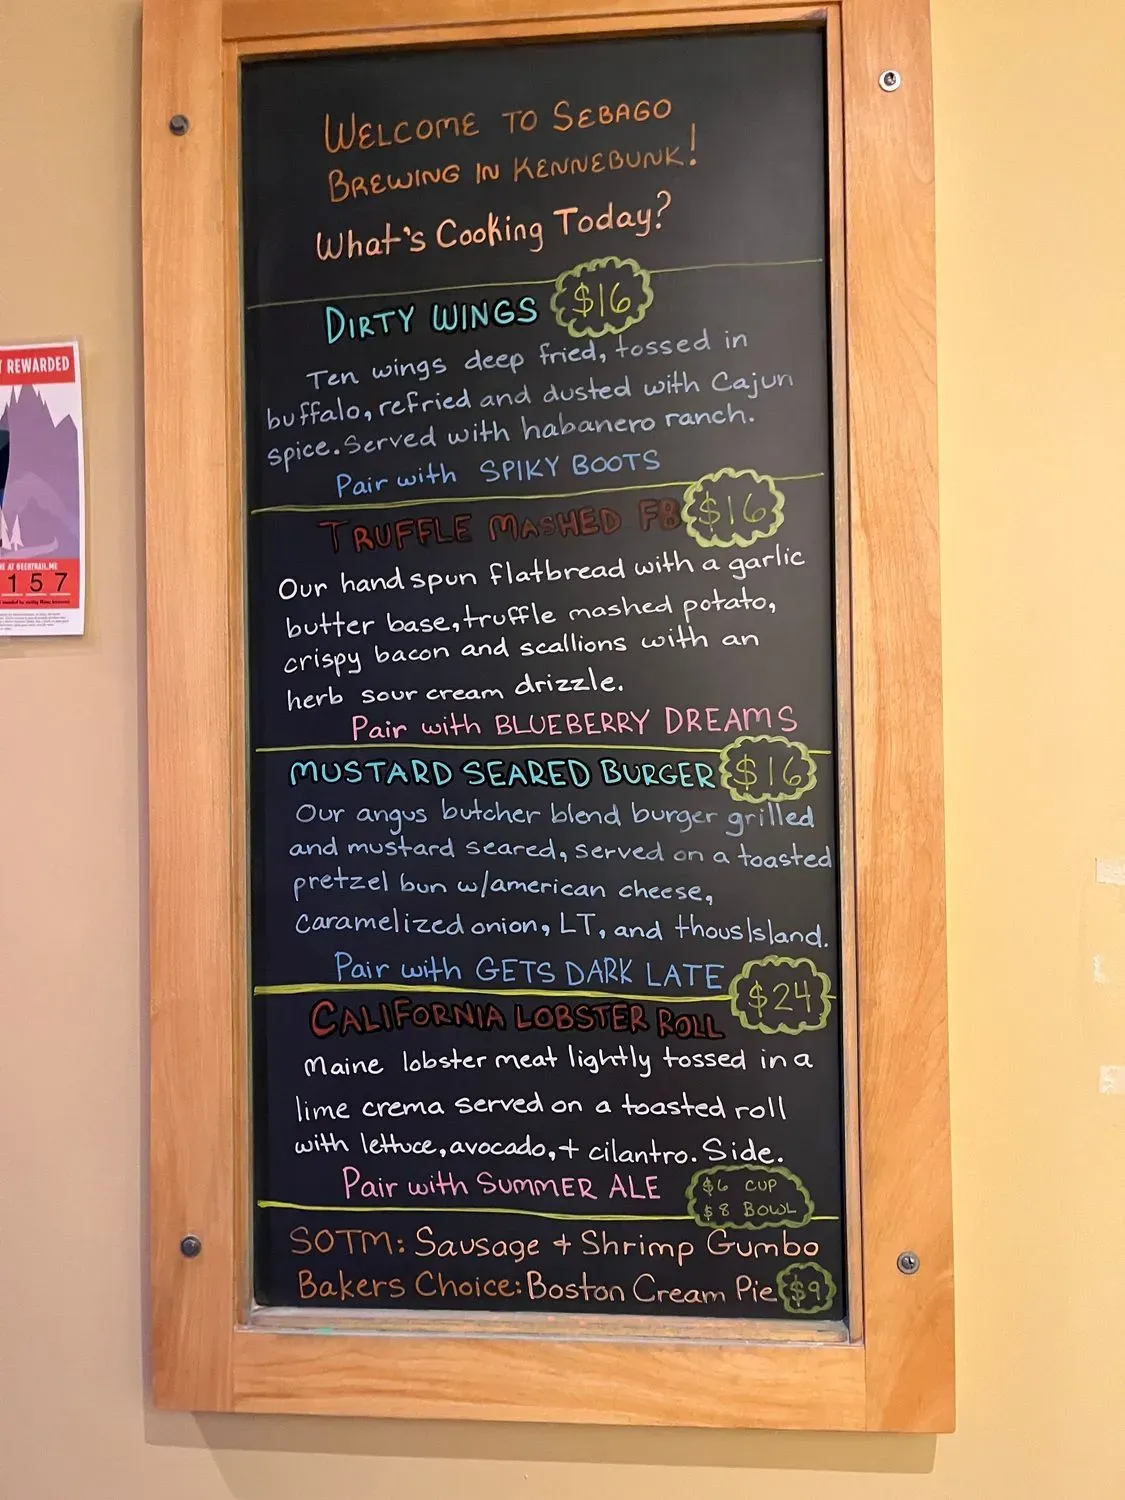 WELCOME TO SEBAGO
BREWING IN KENNEBUNK!
What's Cooking Today?
DIRTY WINGS $16
Ten wings deep fried, tossed in
buffalo, refried and dusted with Cajun
spice. Served with habanero ranch.
Pair with SPIKY BOOTS
TRUFFLE MASHED FB $16
Our hand spun flatbread with a garlic
butter base, truffle mashed potato,
crispy bacon and scallions with an
herb sour cream drizzle.
Pair with BLUEBERRY DREAMS
MUSTARD SEARED BURGER $16
Our angus butcher blend burger grilled
and mustard seared, served on a toasted
pretzel bun w/american cheese,
caramelized onion, LT, and thousIsland.
Pair with GETS DARK LATE
CALIFORNIA LOBSTER ROLL $24
Maine lobster meat lightly tossed in a
lime crema served on a toasted roll
with lettuce, avocado, + cilantro. Side.
Pair with SUMMER ALE
$6 CUP
$8 BOWL
SOTM: Sausage + Shrimp Gumbo
Bakers Choice: Boston Cream Pie $9
REWARDED
AT BEERTRAIL.ME
157